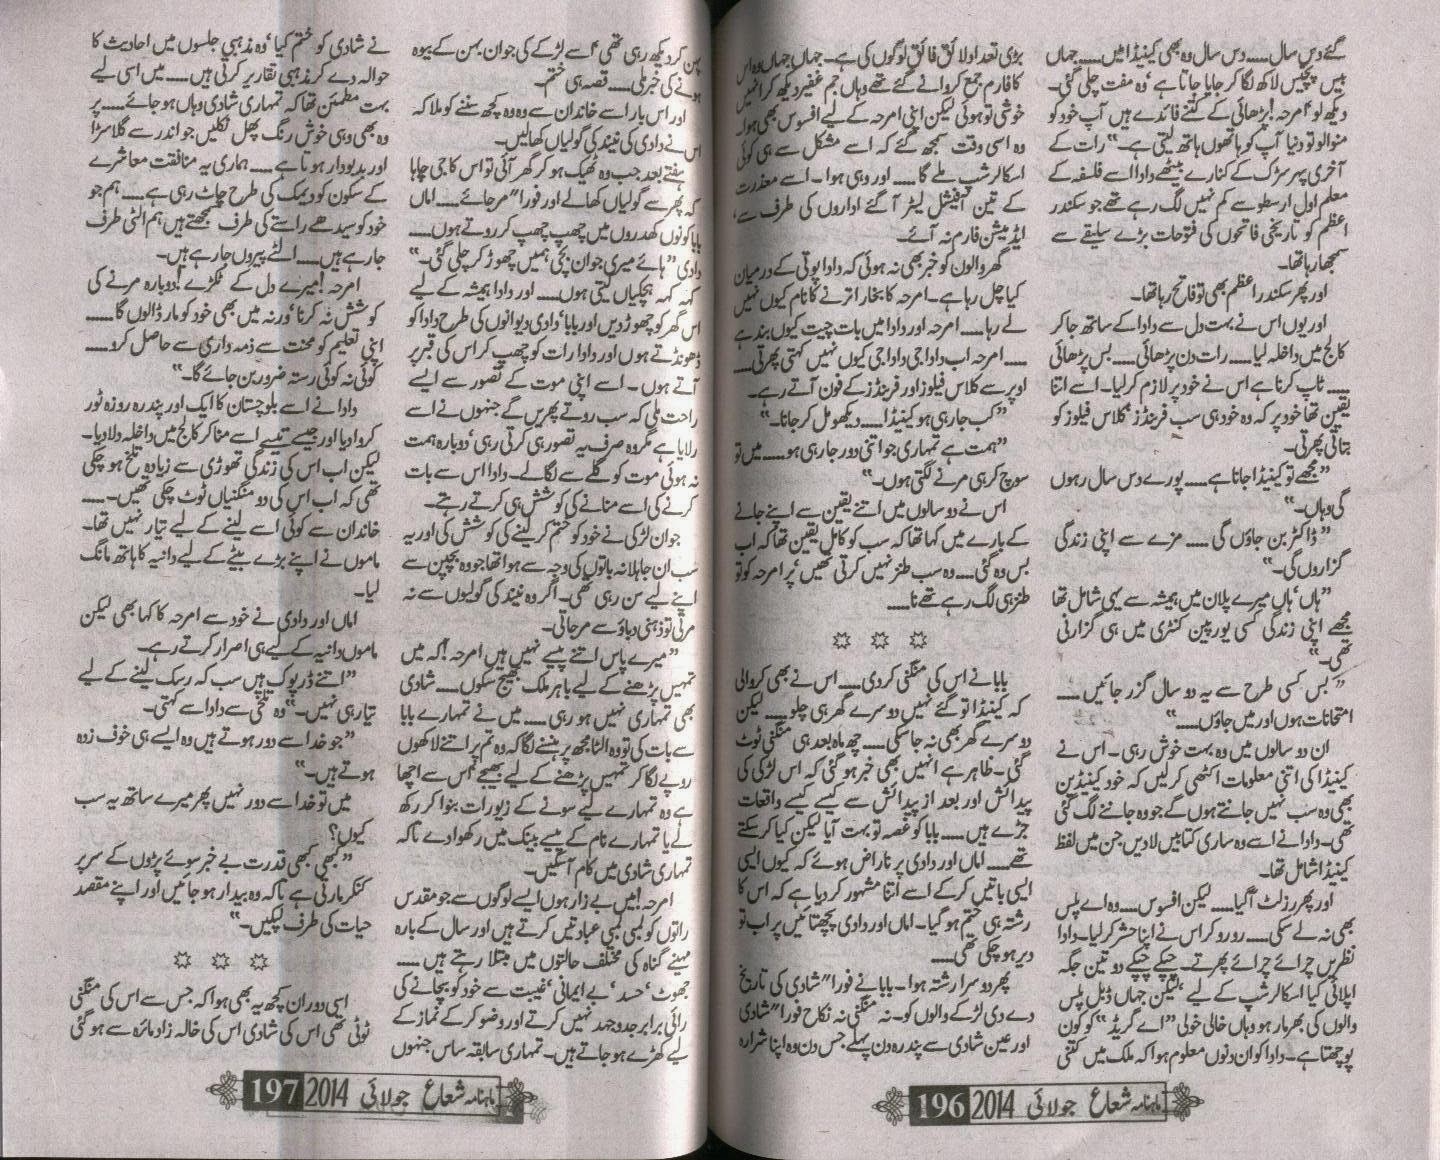 گئے دس سال..... دس سال وہ بھی کینیڈا میں..... جہاں
بیس پچیس لاکھ لگا کر جایا جاتا ہے' وہ مفت چلی گئی۔
دیکھ لو امرحہ! پڑھائی کے کتنے فائدے ہیں آپ خود کو
منوالو تو دنیا آپ کو ہاتھوں ہاتھ لیتی ہے۔" رات کے
آخری پہر سڑک کے کنارے بیٹھے دادا اسے فلسفہ کے
معلم اول ارسطو سے کم نہیں لگ رہے تھے جو سکندر
اعظم کو تاریخی فاتحوں کی فتوحات بڑے سلیقے سے
سمجھا رہا تھا۔
اور پھر سکندر اعظم بھی تو فاتح رہا تھا۔
اور یوں اس نے بہت دل سے دادا کے ساتھ جا کر
کالج میں داخلہ لیا..... رات دن پڑھائی..... بس پڑھائی
..... ٹاپ کرنا ہے اس نے خود پر لازم کر لیا۔ اسے اتنا
یقین تھا خود پر کہ وہ خود ہی سب فرینڈز' کلاس فیلوز کو
بتاتی پھرتی۔
"مجھے تو کینیڈا جانا ہے..... پورے دس سال رہوں
گی وہاں۔"
"ڈاکٹر بن جاؤں گی..... مزے سے اپنی زندگی
گزاروں گی۔"
"ہاں' ہاں میرے پلان میں ہمیشہ سے یہی شامل تھا
مجھے اپنی زندگی کسی یورپین کنٹری میں ہی گزارنی
تھی۔"
"بس کسی طرح سے یہ دو سال گزر جائیں.....
امتحانات ہوں اور میں جاؤں....."
ان دو سالوں میں وہ بہت خوش رہی۔ اس نے
کینیڈا کی اتنی معلومات اکٹھی کر لیں کہ خود کینیڈین
بھی وہ سب نہیں جانتے ہوں گے جو وہ جاننے لگ گئی
تھی۔ دادا نے اسے وہ ساری کتابیں لا دیں جن میں لفظ
کینیڈا شامل تھا۔
اور پھر رزلٹ آگیا..... لیکن افسوس..... وہ اے پلس
بھی نہ لے سکی..... رو رو کر اس نے اپنا حشر کر لیا۔ دادا
نظریں چرائے چرائے پھرتے۔ چپکے چپکے دو تین جگہ
اپلائی کیا اسکالر شپ کے لیے' لیکن جہاں ڈبل پلس
والوں کی بھرمار ہو وہاں خالی خولی "اے گریڈ" کو کون
پوچھتا ہے۔ دادا کو ان دنوں معلوم ہوا کہ ملک میں کتنی
بڑی تعداد لائق فائق لوگوں کی ہے۔ جہاں جہاں وہ اس
کا فارم جمع کروانے گئے تھے وہاں جم غفیر دیکھ کر انہیں
خوشی تو ہوئی لیکن اپنی امرحہ کے لیے افسوس بھی ہوا۔
وہ اسی وقت سمجھ گئے کہ اسے مشکل سے ہی کوئی
اسکالر شپ ملے گا..... اور وہی ہوا۔ اسے معذرت
کے تین آفیشل لیٹر آ گئے اداروں کی طرف سے'
ایڈمیشن فارم نہ آئے۔
گھر والوں کو خبر بھی نہ ہوئی کہ دادا پوتی کے درمیان
کیا چل رہا ہے۔ امرحہ کا بخار اترنے کا نام کیوں نہیں
لے رہا..... امرحہ اور دادا میں بات چیت کیوں بند ہے
..... امرحہ اب دادا جی دادا جی کیوں نہیں کہتی پھرتی.....
اوپر سے کلاس فیلوز اور فرینڈز کے فون آتے رہے۔
"کب جا رہی ہو کینیڈا..... دیکھو مل کر جانا۔"
"ہمت ہے تمہاری جو اتنی دور جا رہی ہو..... میں تو
سوچ کر ہی مرنے لگتی ہوں۔"
اس نے دو سالوں میں اتنے یقین سے اپنے جانے
کے بارے میں کہا تھا کہ سب کو کامل یقین تھا کہ اب
بس وہ گئی..... وہ سب طنز نہیں کرتی تھیں' پر امرحہ کو تو
طنز ہی لگ رہے تھے نا.....
بابا نے اس کی منگنی کر دی..... اس نے بھی کروالی
کہ کینیڈا تو گئے نہیں دوسرے گھر ہی چلو..... لیکن
دوسرے گھر بھی نہ جا سکی..... چھ ماہ بعد ہی منگنی ٹوٹ
گئی۔ ظاہر ہے انہیں بھی خبر ہو گئی کہ اس لڑکی کی
پیدائش اور بعد از پیدائش سے کیسے کیسے واقعات
جڑے ہیں..... بابا کو غصہ تو بہت آیا لیکن کیا کر سکتے
تھے..... اماں اور دادی پر ناراض ہوئے کہ کیوں ایسی
ایسی باتیں کر کے اسے اتنا مشہور کر دیا ہے کہ اس کا
رشتہ ہی ختم ہو گیا۔ اماں اور دادی پچھتائیں پر اب تو
دیر ہو چکی تھی.....
پھر دوسرا رشتہ ہوا۔ بابا نے فورا" شادی کی تاریخ
دے دی لڑکے والوں کو۔ نہ منگنی نہ نکاح فورا" شادی
اور عین شادی سے پندرہ دن پہلے جس دن وہ اپنا شرارہ
ماہنامہ شعاع جولائی 2014 196
پہن کر دیکھ رہی تھی' اسے لڑکے کی جوان بہن کے بیوہ
ہونے کی خبر ملی..... قصہ ہی ختم۔
اور اس بار اسے خاندان سے وہ وہ کچھ سننے کو ملا کہ
اس نے دادی کی نیند کی گولیاں کھالیں۔
ہفتے بعد جب وہ ٹھیک ہو کر گھر آئی تو اس کا جی چاہا
کہ پھر سے گولیاں کھالے اور فورا" مر جائے..... اماں
بابا کونوں کھدروں میں چھپ چھپ کر روتے ہوں.....
دادی "ہائے میری جوان بچی ہمیں چھوڑ کر چلی گئی۔"
کہہ کہہ ہچکیاں لیتی ہوں..... اور دادا ہمیشہ کے لیے
اس گھر کو چھوڑ دیں اور بابا' دادی دیوانوں کی طرح دادا کو
ڈھونڈتے ہوں اور دادا رات کو چھپ کر اس کی قبر پر
آتے ہوں۔ اسے اپنی موت کے تصور سے ایسے
راحت ملی کہ سب روتے پھریں گے جنہوں نے اسے
رلایا ہے مگر وہ صرف یہ تصور ہی کرتی رہی' دوبارہ ہمت
نہ ہوئی موت کو گلے سے لگالے۔ دادا اس سے بات
کرنے کی اسے منانے کی کوشش ہی کرتے رہتے۔
جوان لڑکی نے خود کو ختم کر لینے کی کوشش کی اور یہ
سب ان جاہلانہ باتوں کی وجہ سے ہوا تھا جو وہ بچپن سے
اپنے لیے سن رہی تھی۔ اگر وہ نیند کی گولیوں سے نہ
مرتی تو ذہنی دباؤ سے مر جاتی۔
"میرے پاس اتنے پیسے نہیں ہیں امرحہ! کہ میں
تمہیں پڑھنے کے لیے باہر ملک بھیج سکوں..... شادی
بھی تمہاری نہیں ہو رہی..... میں نے تمہارے بابا
سے بات کی تو وہ الٹا مجھ پر ہنسنے لگا کہ وہ تم پر اتنے لاکھوں
روپے لگا کر تمہیں پڑھنے کے لیے بھیجے' اس سے اچھا
ہے وہ تمہارے لیے سونے کے زیورات بنوا کر رکھ
لے یا تمہارے نام کے پیسے بینک میں رکھوا دے تاکہ
تمہاری شادی میں کام آسکیں۔
امرحہ! میں بے زار ہوں ایسے لوگوں سے جو مقدس
راتوں کو لمبی لمبی عبادتیں کرتے ہیں اور سال کے بارہ
مہینے گناہ کی مختلف حالتوں میں مبتلا رہتے ہیں.....
جھوٹ' حسد' بے ایمانی' غیبت سے خود کو بچانے کی
رائی برابر جدوجہد نہیں کرتے اور وضو کر کے نماز کے
لیے کھڑے ہو جاتے ہیں۔ تمہاری سابقہ ساس جنہوں
نے شادی کو ختم کیا' وہ مذہبی جلسوں میں احادیث کا
حوالہ دے کر مذہبی تقاریر کرتی ہیں..... میں اسی لیے
بہت مطمئن تھا کہ تمہاری شادی وہاں ہو جائے..... پر
وہ بھی وہی خوش رنگ پھل نکلیں جو اندر سے گلا سڑا
اور بدبودار ہوتا ہے..... ہماری یہ منافقت معاشرے
کے سکون کو دیمک کی طرح چاٹ رہی ہے..... ہم جو
خود کو سیدھے راستے کی طرف سمجھتے ہیں ہم الٹی طرف
جا رہے ہیں..... الٹے پیروں جا رہے ہیں۔
امرحہ! میرے دل کے ٹکڑے! دوبارہ مرنے کی
کوشش نہ کرنا' ورنہ میں بھی خود کو مار ڈالوں گا.....
اپنی تعلیم کو محنت سے ذمہ داری سے حاصل کرو.....
کوئی نہ کوئی رستہ ضرور بن جائے گا۔"
دادا نے اسے بلوچستان کا ایک اور پندرہ روزہ ٹور
کروا دیا اور جیسے تیسے اسے منا کر کالج میں داخلہ دلا دیا۔
لیکن اب اس کی زندگی تھوڑی سے زیادہ تلخ ہو چکی
تھی کہ اب اس کی دو منگنیاں ٹوٹ چکی تھیں۔.....
خاندان سے کوئی اسے لینے کے لیے تیار نہیں تھا۔
ماموں نے اپنے بڑے بیٹے کے لیے دانیہ کا ہاتھ مانگ
لیا۔
اماں اور دادی نے خود سے امرحہ کا کہا بھی لیکن
ماموں دانیہ کے لیے ہی اصرار کرتے رہے۔
"اتنے ڈرپوک ہیں سب کہ رسک لینے کے لیے
تیار ہی نہیں۔" وہ تلخی سے دادا سے کہتی۔
"جو خدا سے دور ہوتے ہیں وہ ایسے ہی خوف زدہ
ہوتے ہیں۔"
میں تو خدا سے دور نہیں پھر میرے ساتھ یہ سب
کیوں؟
"کبھی کبھی قدرت بے خبر سوئے پڑوں کے سر پر
کنکر مارتی ہے تاکہ وہ بیدار ہو جائیں اور اپنے مقصد
حیات کی طرف لپکیں۔"
اسی دوران کچھ یہ بھی ہوا کہ جس سے اس کی منگنی
ٹوٹی تھی اس کی شادی اس کی خالہ زاد مائرہ سے ہو گئی
ماہنامہ شعاع جولائی 2014 197